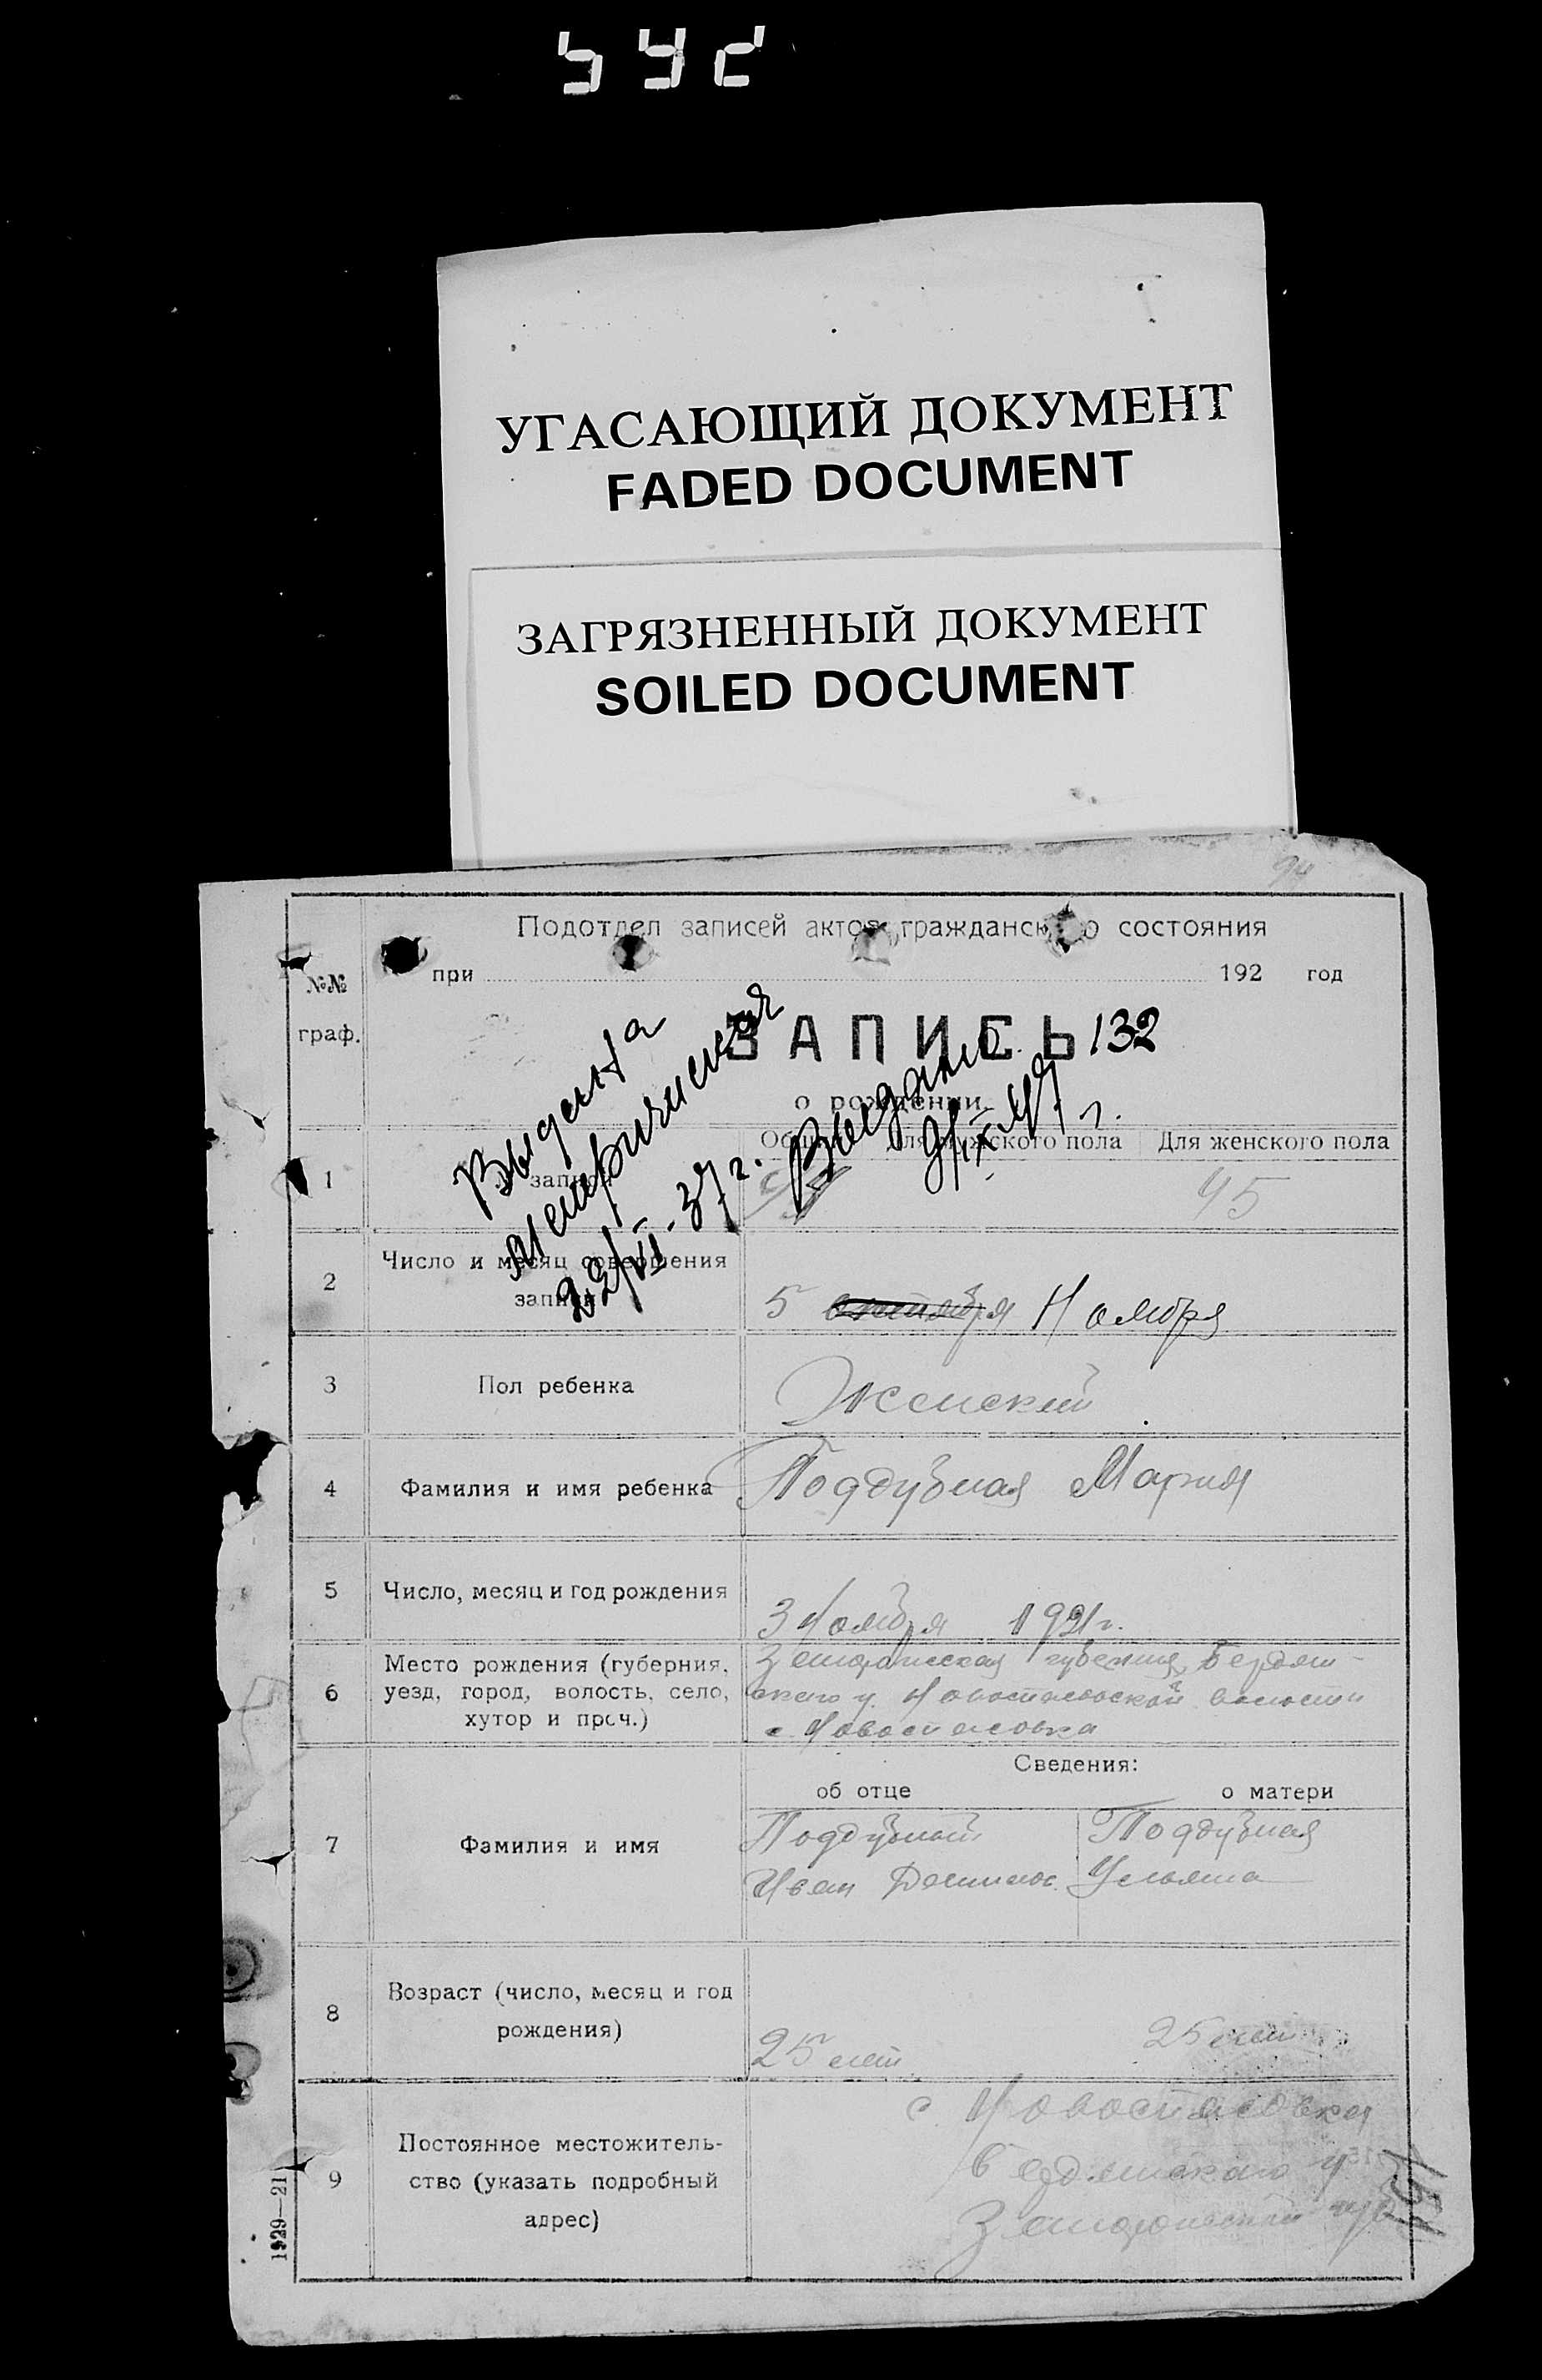 542
УГАСАЮЩИЙ ДОКУМЕНТ
FADED DOCUMENT
ЗАГРЯЗНЕННЫЙ ДОКУМЕНТ
SOILED DOCUMENT
94
Подотдел записей актов гражданского состояния
при 192 год
№№
граф.
ЗАПИСЬ 132
о рождении
Выдана
метрическая
22/VI-37 г.
Выдано
9/IX 47 г.
Для мужского пола Для женского пола
1 записи 45
2 Число и месяц совершения
записи
5 октября Ноября
3 Пол ребенка Женский
4 Фамилия и имя ребенка Поддубная Мария
5 Число, месяц и год рождения 3 Ноября 1921 г.
6 Место рождения (губерния,
уезд, город, волость, село,
хутор и проч.)
Бердян-
ского у. Новоспасовской волости
с. Новоспасовка
Сведения:
об отце о матери
7 Фамилия и имя
Поддубный Поддубная
Иван Ульяна
8 Возраст (число, месяц и год
рождения)
25 лет 25 лет
9 Постоянное местожитель-
ство (указать подробный
адрес)
с. Новоспасовка
Бердянского у
губ
1929—21